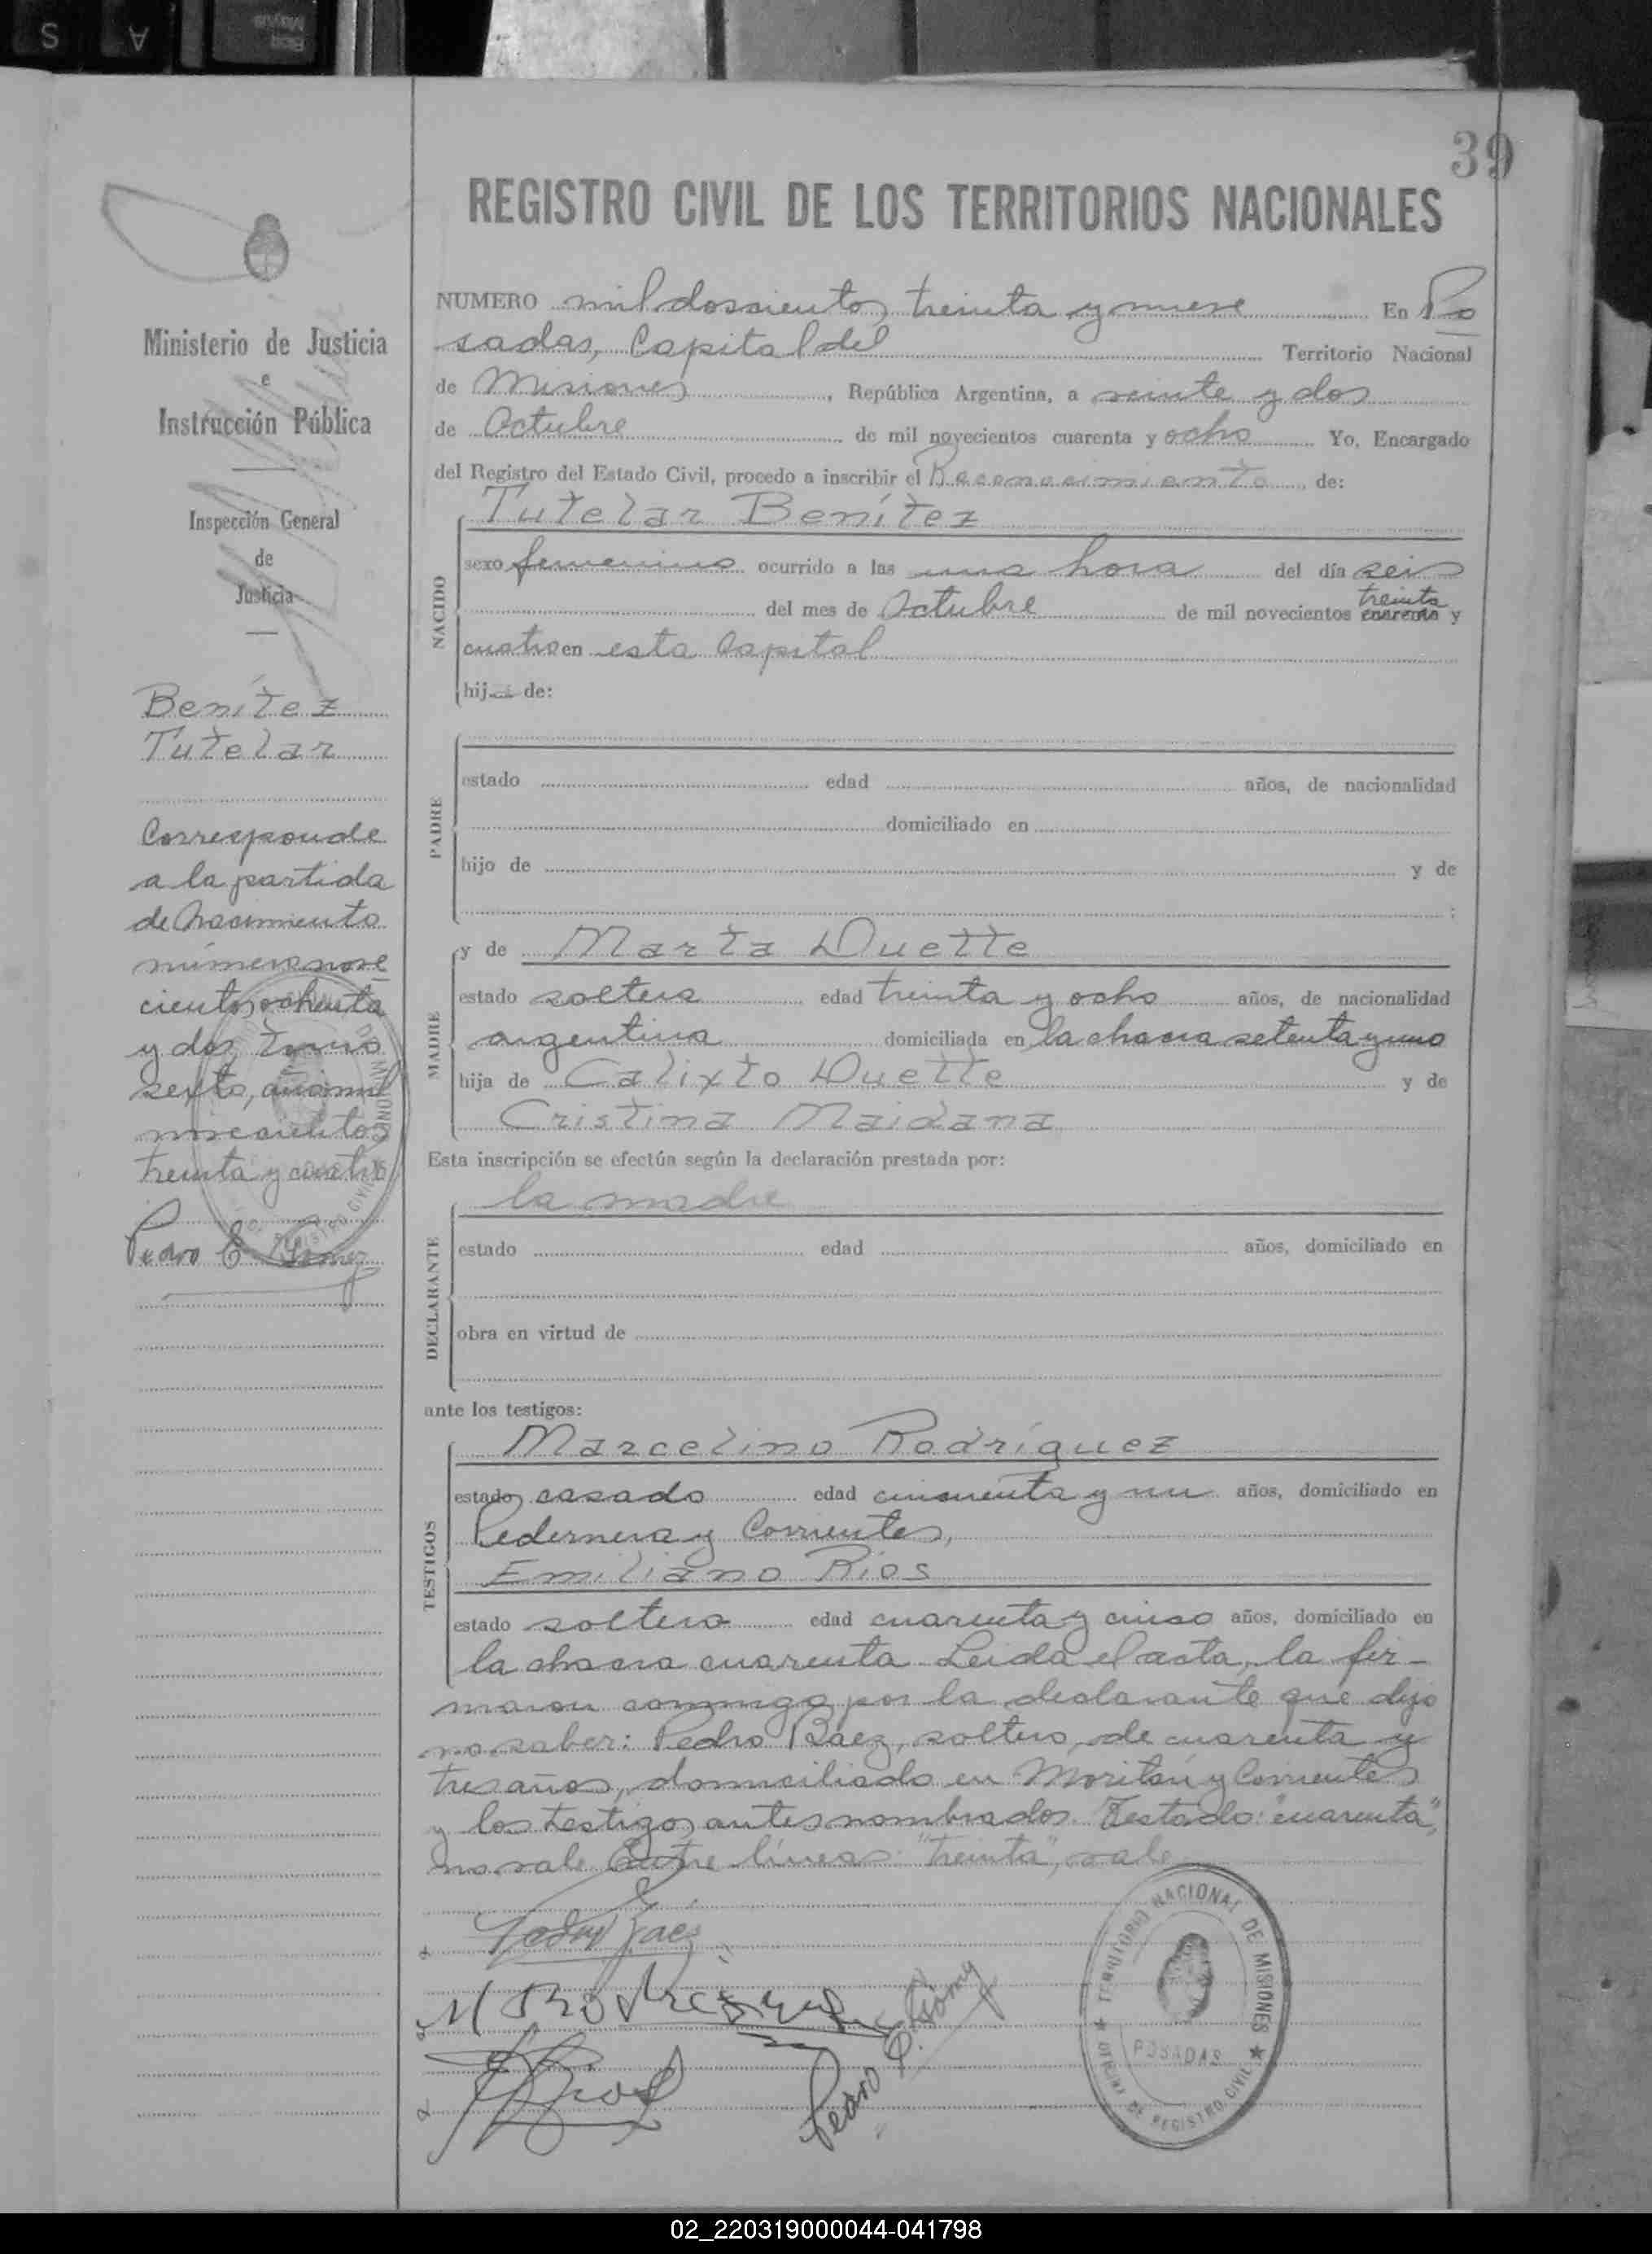 39
REGISTRO CIVIL DE LOS TERRITORIOS NACIONALES
Ministerio de Justicia
e
Instrucción Pública
Inspección General
de
Justicia
Benítez
Tutelar
Corresponde
a la partida
de nacimiento
número nove
cientos ochenta
y dos, tomo
sexto, año mil
novecientos
treinta y cuatro
NUMERO mil doscientos treinta y nueve En Po
sadas, Capital del Territorio Nacional
de Misiones, República Argentina, a veinte y dos
de Octubre de mil novecientos cuarenta y ocho Yo, Encargado
del Registro del Estado Civil, procedo a inscribir el Reconocimiento de:
NACIDO
Tutelar Benítez
sexo femenino ocurrido a las una hora del día seis
del mes de Octubre de mil novecientos cuarenta treinta y
cuatro en esta Capital
hija de:
PADRE
estado edad años, de nacionalidad
domiciliado en
hijo de y de
;
MADRE
y de Marta Duette
estado soltera edad treinta y ocho años, de nacionalidad
argentina domiciliada en la chacra setenta y uno
hija de Calixto Duette y de
Cristina Maidana
Esta inscripción se efectúa según la declaración prestada por:
DECLARANTE
la madre
estado edad años, domiciliado en
obra en virtud de
ante los testigos:
TESTIGOS
Marcelino Rodríguez
estado casado edad cincuenta y un años, domiciliado en
Pedernera y Corrientes,
Emiliano Rios
estado soltero edad cuarenta y cinco años, domiciliado en
la chacra cuarenta Leida el acta, la fir-
maron conmigo por la declarante que dijo
no saber: Pedro Báez, soltero, de cuarenta y
tres años, domiciliado en y Corrientes
y los testigos antes nombrados. Testado: "cuarenta",
no vale. Entre líneas: "treinta", vale
Pedro Baez
TERRITORIO NACIONAL DE MISIONES
POSADAS
OFICINA DE REGISTRO CIVIL
02_220319000044-041798